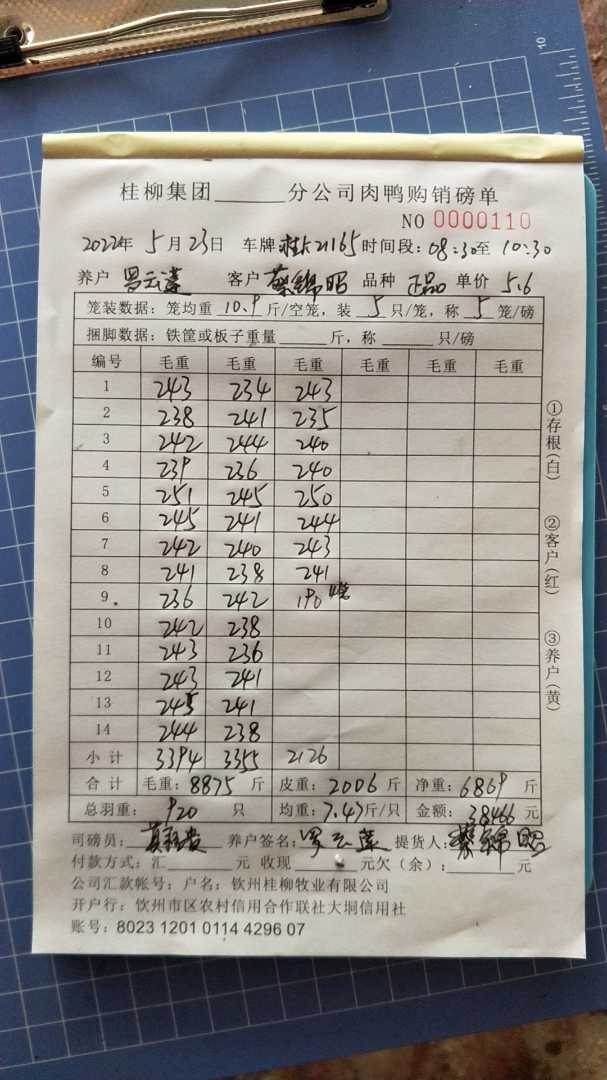 桂柳集团______分公司肉鸭购销磅单
NO 0000110
2022年 5月23日 车牌 桂K21165 时间段: 08:30至 10:30
养户 罗云莲 客户 蔡锦昭 品种 正品 单价 5.6
笼装数据: 笼均重 10.9 斤/空笼, 装 5 只/笼, 称 5 笼/磅
捆脚数据: 铁筐或板子重量______斤, 称______只/磅
编号 毛重 毛重 毛重 毛重 毛重 毛重
1 243 234 243
2 238 241 235
3 242 244 240
4 239 236 240
5 251 245 250
6 245 241 244
7 242 240 243
8 241 238 241
9 236 242 190
10 242 238
11 243 236
12 243 241
13 245 241
14 244 238
小计 3394 3355 2126
合计 毛重: 8875 斤 皮重: 2006 斤 净重: 6869 斤
总羽重: 920 只 均重: 7.47斤/只 金额: 38466 元
司磅员: 养户签名: 罗云莲 提货人: 蔡锦昭
付款方式: 汇______元 收现______元欠(余): ______元
公司汇款帐号: 户名: 钦州桂柳牧业有限公司
开户行: 钦州市区农村信用合作联社大垌信用社
账号: 8023 1201 0114 4296 07
①存根(白)
②客户(红)
③养户(黄)
10